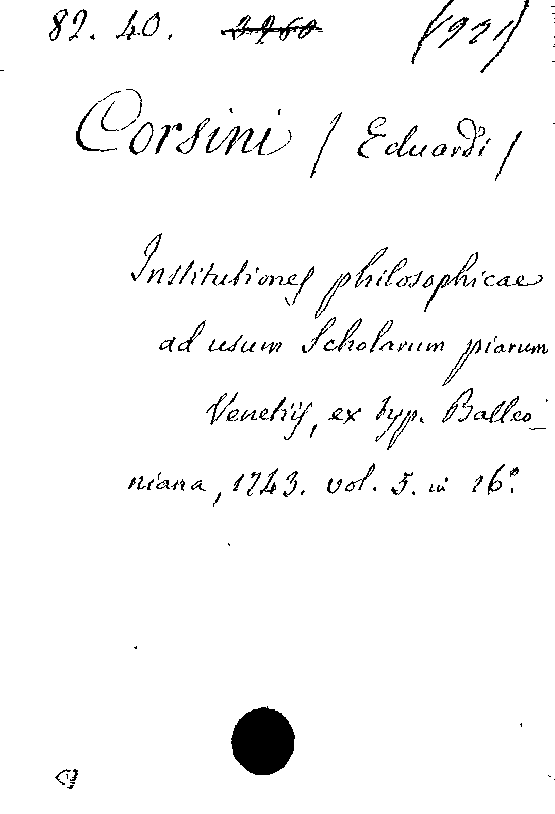 82. 40. 3760 (921)
Corsini / Eduardi /
Institutiones philosophicae
ad usum Scholarum piarum
Venetiis, ex typ. Balleo-
niana, 1743. vol. 5. in 16°.